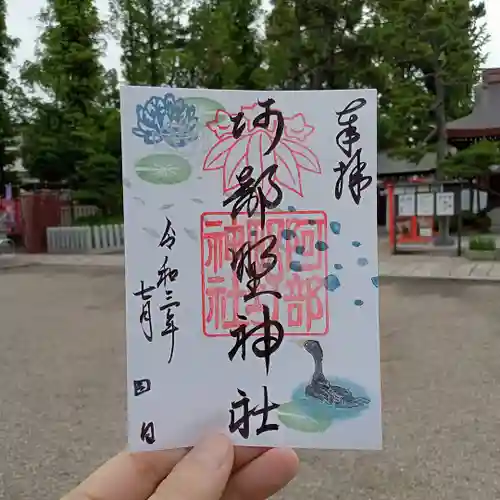 奉拝
阿部野神社
阿部野神社
令和三年
七月四日